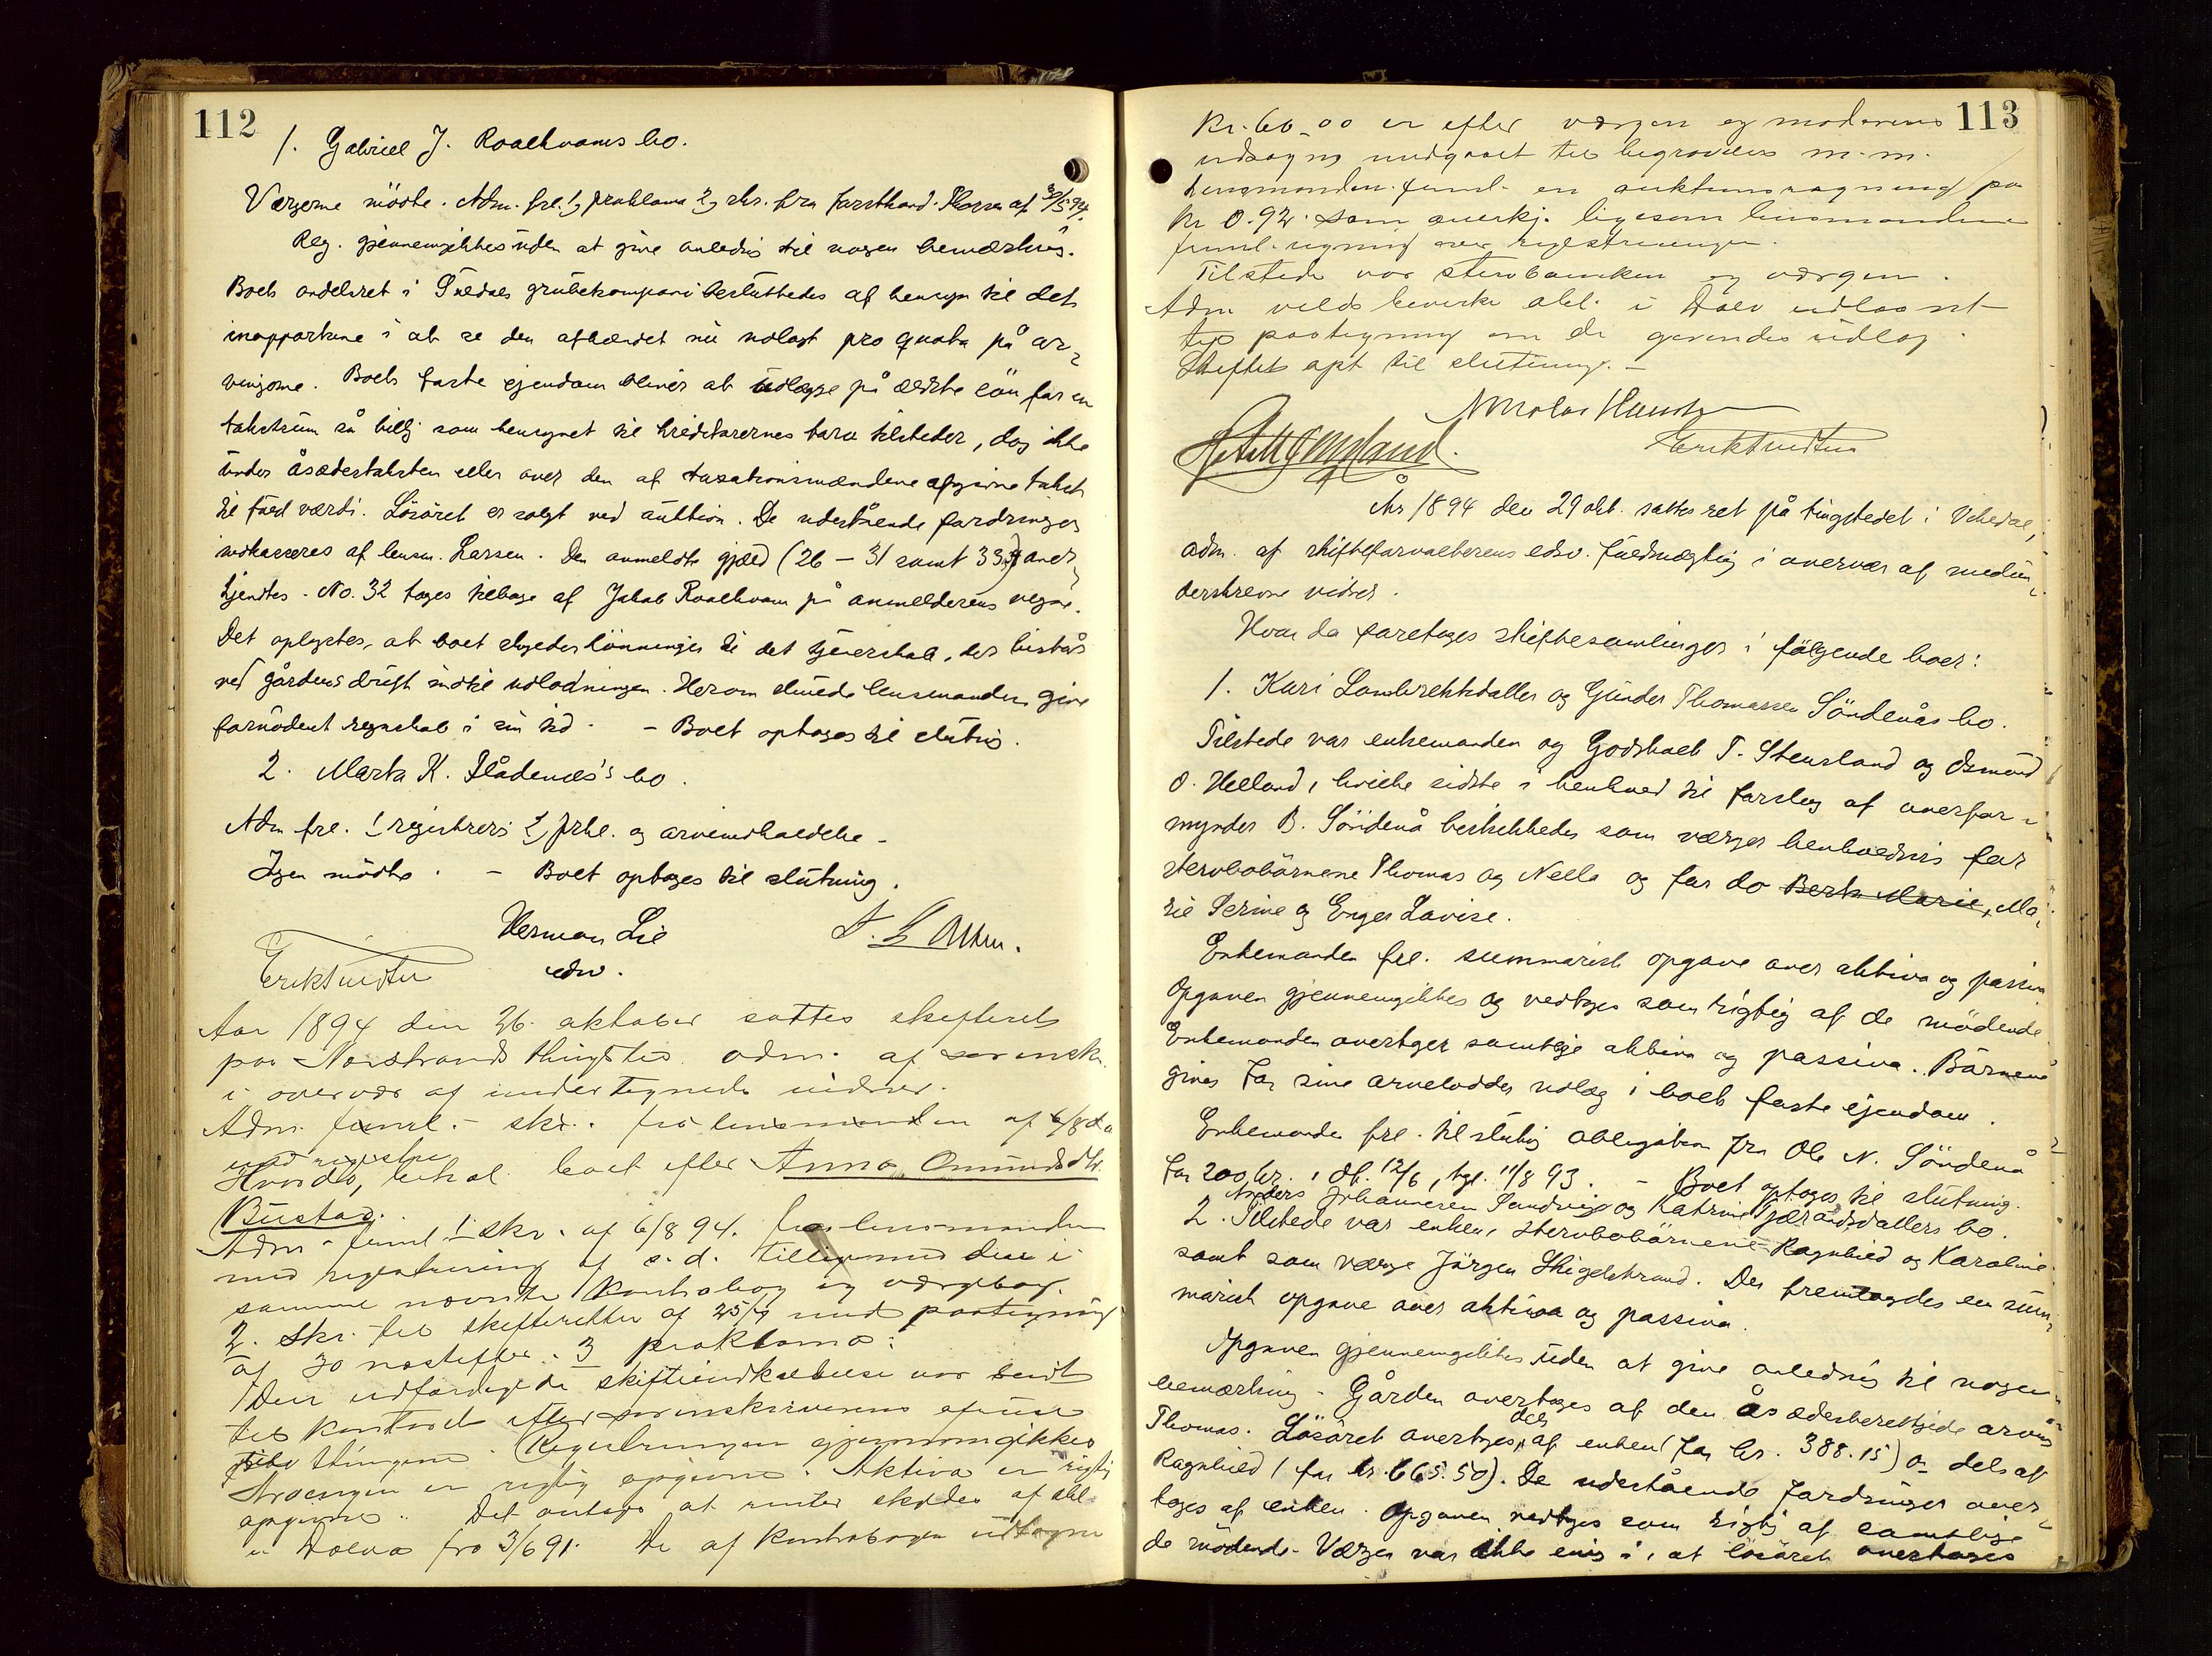 112
1. Gabriel J. Roaldkvams bo.
Vergerne mødte. Adm. frl. 1) proklama 2) skr. fra forsthand. Plassen af 30/5 94.
Reg. gjennemgikkes uden at give anledning til nogen bemærkning.
Boets andelsret i Suldals grubekompani besluttedes af hensyn til det
inopportune i at se den afhændet nu udlagt pro quota på ar-
vingerne. Boets faste ejendom bliver at udlægge på ældste søn for en
takstsum så billig som hensynet til kreditorernes tarv tilsteder, dog ikke
under åsædestaksten eller over den af taxationsmændene afgivne takst
til fuld værdi. Løsøret er solgt ved auktion. De udestående fordringer
indkasseres af lensm. Larsen. Den anmeldte gjæld (26 – 31 samt 33) aner-
kjendtes. No. 32 toges tilbage af Jakob Roaldkvam på anmelderens vegne.
Det oplystes, at boet skyder lønninger til det tjenerskab, der bistår
ved gårdens drift indtil udlodningen. Herom skulde lensmanden give
fornødent regnskab i sin tid. – Boet optoges til slutning.
2. Marta K. Flådenæs's bo.
Adm frl. 1) registrering 2) prkl. og arveindkaldelse –
Ingen mødte. – Boet optoges til slutning.
Herman Lie
edsv.
Erik Knudsen
Aar 1894 den 26. oktober sattes skifteret
paa Nerstrands thingsted adm. af sorenskr.
i overvær af undertegnede vidner.
Adm. feml. – skr. fra lensmanden af 6/8 d.a
med registre
Hvorda, behdl. boet efter Anna Omundsdtr.
Bustad.
Adm. feml. 1 skr. af 6/8 94. fra lensmanden
med registrering af s.d. tilligemed den i
samme nævnte kontrabog og værgebog.
2. Skr. til skifteretten af 25/9 med paategning
af 30 næstefter. 3 proklama.
Den udfærdigede skifteindkaldelse var sendt
til kontoret efter sorenskriverens afreise
til thingene. Registreringen gjennomgikkes
Arvengen er rigtig opgivne. Aktiva er rigtig
opgivne. Det antages at renter skyldes af obl
in Dolva fra 3/6 91. De af kontrabogen udtagne
113
Kr. 60.00 er efter værgen og moderens
udsagns medgaaet til begravelse m.m.
Lensmanden feml. en auktionsregning paa
kr 0.92. som anerkj. ligesom lensmandens
feml. regning over registreringen.
Tilstede var stervbaenken og værgen.
Adm vilde bevirke obl. i Dolv udlaant
til paategning om de gjorende udlæg.
Skiftet opt til slutning. –
Nikolas Hansen
Erik Knudsen
År 1894 den 29 okt. sattes ret på tingstedet i Vikedal,
adm. af skifteforvalterens edsv. fuldmægtig i overvær af medun-
derskrevne vidner.
Hvor da foretoges skiftesamlinger i følgende boer:
1. Kari Lambrektsdatter og Gunder Thomassen Söndenås bo.
Tilstede var enkemanden og Godskalk T. Stensland og Osmund
O. Helland, hvilke sidste i henhold til forslag af overfor-
mynder B. Söndenå beskikkedes som værger henholdsvis for
stervbobørnene Thomas og Nella og for do Berta Marie, Ma-
rie Serine og Enger Lovise.
Enkemanden frl. summarisk opgave over aktiva og passiva
Opgaven gjennemgikkes og vedtoges som rigtig af de mødende
Enkemanden overtager samtlige aktiva og passiva. Børnene
gives for sine arvelodder udlæg i boets faste ejendom.
Enkemanden frl. til sletning obligation fra Ole N. Söndenå
for 200 kr., df. 12/6, tgl. 11/8 93. – Boet optoges til slutning.
2. Anders Johannesen Sandvig og Katrine Gjærandsdatters bo.
Tilstede var enken, stervbobørnene Ragnhild og Karoline
samt som værge Jørgen Skigelstrand. Der fremlagdes en sum-
marisk opgave over aktiva og passiva.
Opgaven gjennemgikkes uden at give anledning til nogen
bemærkning. Gården overtages af den åsædesberettigede arving
Thomas. Løsøret overtoges dels af enken (for kr. 388.15) og dels af
Ragnhild (for kr. 665.50). De udestående fordringer over-
toges af enken. Opgaven vedtoges som rigtig af samtlige
de mødende. Værgen var ikke enig i, at løsøret overtoges